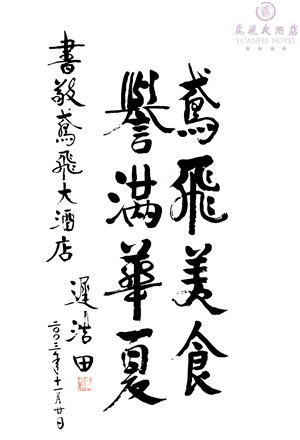 鳶飛大酒店
YUANFEI HOTEL
鳶飛美食
譽滿華夏
書敬鳶飛大酒店
遲浩田
二〇〇三年十一月廿日